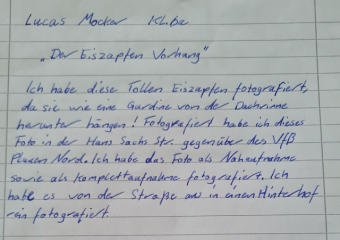 Lucas Mocker Kl.6a
„Der Eiszapfen Vorhang"
Ich habe diese Tollen Eiszapfen fotografiert,
da sie wie eine Gardine von der Dachrinne
herunter hängen! Fotografiert habe ich dieses
Foto in der Hans Sachs Str. gegenüber des VfB
Plauen Nord. Ich habe das Foto als Nahaufnahme
sowie als komplettaufnahme fotografiert. Ich
habe es von der Straße aus in einen Hinterhof
rein fotografiert.